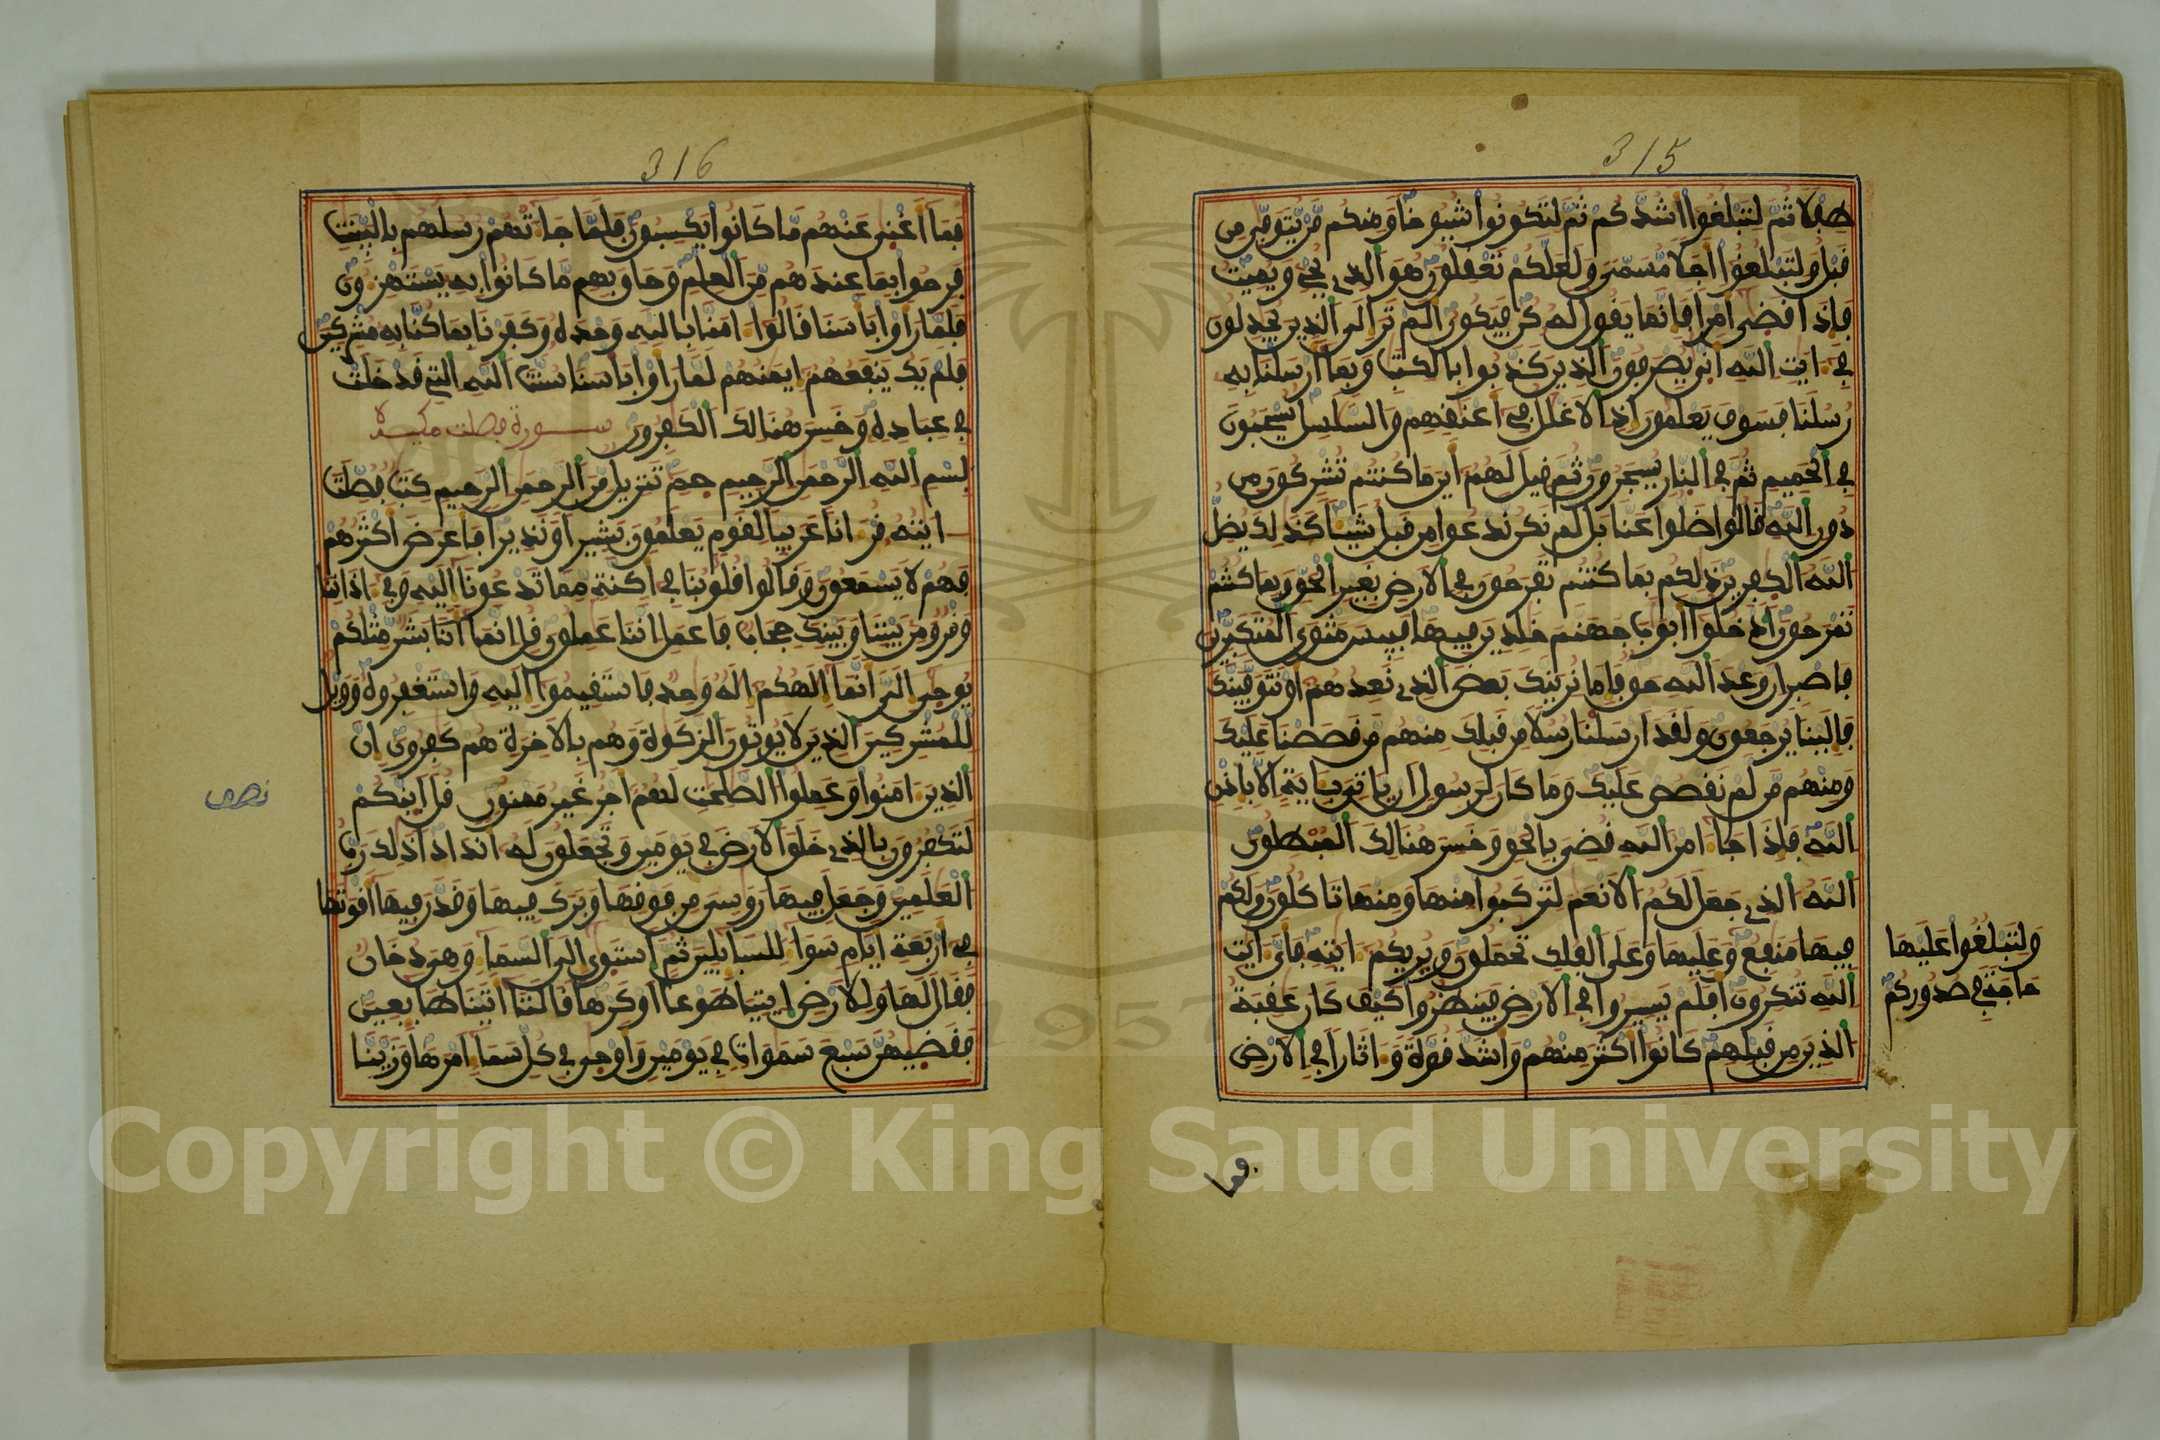 315
طفلا ثم لتبلغوا أشدكم ثم لتكونوا شيوخا ومنكم من يتوفى من
قبل ولتبلغوا أجلا مسمى ولعلكم تعقلون هو الذي يحي ويميت
فإذا قضى أمرا فإنما يقول له كن فيكون ألم تر إلى الذين يجدلون
في ءايت الله أنى يصرفون الذين كذبوا بالكتب وبما أرسلنا به
رسلنا فسوف يعلمون إذ الاغلل في أعنقهم والسلسل يسحبون
في الحميم ثم في النار يسجرون ثم قيل لهم أين ما كنتم تشركون من
دون الله قالوا ضلوا عنا بل لم نكن ندعوا من قبل شيئا كذلك يضل
الله الكفرين ذلكم بما كنتم تفرحون في الارض بغير الحق وبما كنتم
تمرحون ادخلوا أبواب جهنم خلدين فيها فبيس مثوى المتكبرين
فاصبر ان وعد الله حق فإما نرينك بعض الذي نعدهم أو نتوفينك
فإلينا يرجعون ولقد ارسلنا رسلا من قبلك منهم من قصصنا عليك
ومنهم من لم نقصص عليك وما كان لرسول ان ياتي بئاية الا بإذن
الله فإذا جاء امر الله قضي بالحق وخسر هنالك المبطلون
الله الذي جعل لكم الانعم لتركبوا منها ومنها تاكلون ولكم
فيها منفع وعليها وعلى الفلك تحملون ويريكم ءايته فأي ءايت
الله تنكرون أفلم يسيروا في الارض فينظروا كيف كان عقبة
الذين من قبلهم كانوا أكثر منهم وأشد قوة وءاثارا في الارض
ولتبلغوا عليها
حاجة في صدوركم
فما
316
فما أغنى عنهم ما كانوا يكسبون فلما جاءتهم رسلهم بالبينت
فرحوا بما عندهم من العلم وحاق بهم ما كانوا به يستهزءون
فلما رأوا بأسنا قالوا ءامنا بالله وحده وكفرنا بما كنا به مشركين
فلم يك ينفعهم إيمنهم لما رأوا بأسنا سنت الله التي قد خلت
في عباده وخسر هنالك الكفرون سورة فصلت مكية
بسم الله الرحمن الرحيم حم تنزيل من الرحمن الرحيم كتب فصلت
ءايته قرءانا عربيا لقوم يعلمون بشيرا ونذيرا فأعرض أكثرهم
فهم لا يسمعون وقالوا قلوبنا في أكنة مما تدعونا إليه وفي ءاذاننا
وقر ومن بيننا وبينك حجاب فاعمل اننا عملون قل انما أنا بشر مثلكم
يوحى إلي أنما إلهكم إله وحد فاستقيموا إليه واستغفروه وويل
للمشركين الذين لا يوتون الزكوة وهم بالاخرة هم كفرون ان
الذين ءامنوا وعملوا الصلحت لهم أجر غير ممنون قل أينكم
لتكفرون بالذي خلق الارض في يومين وتجعلون له أندادا ذلك رب
العلمين وجعل فيها روسي من فوقها وبرك فيها وقدر فيها أقوتها
في أربعة أيام سواء للسايلين ثم استوى إلى السماء وهي دخان
فقال لها وللارض ايتيا طوعا أو كرها قالتا أتينا طايعين
فقضيهن سبع سموات في يومين وأوحى في كل سماء امرها وزينا
نصف
Copyright © King Saud University
1957